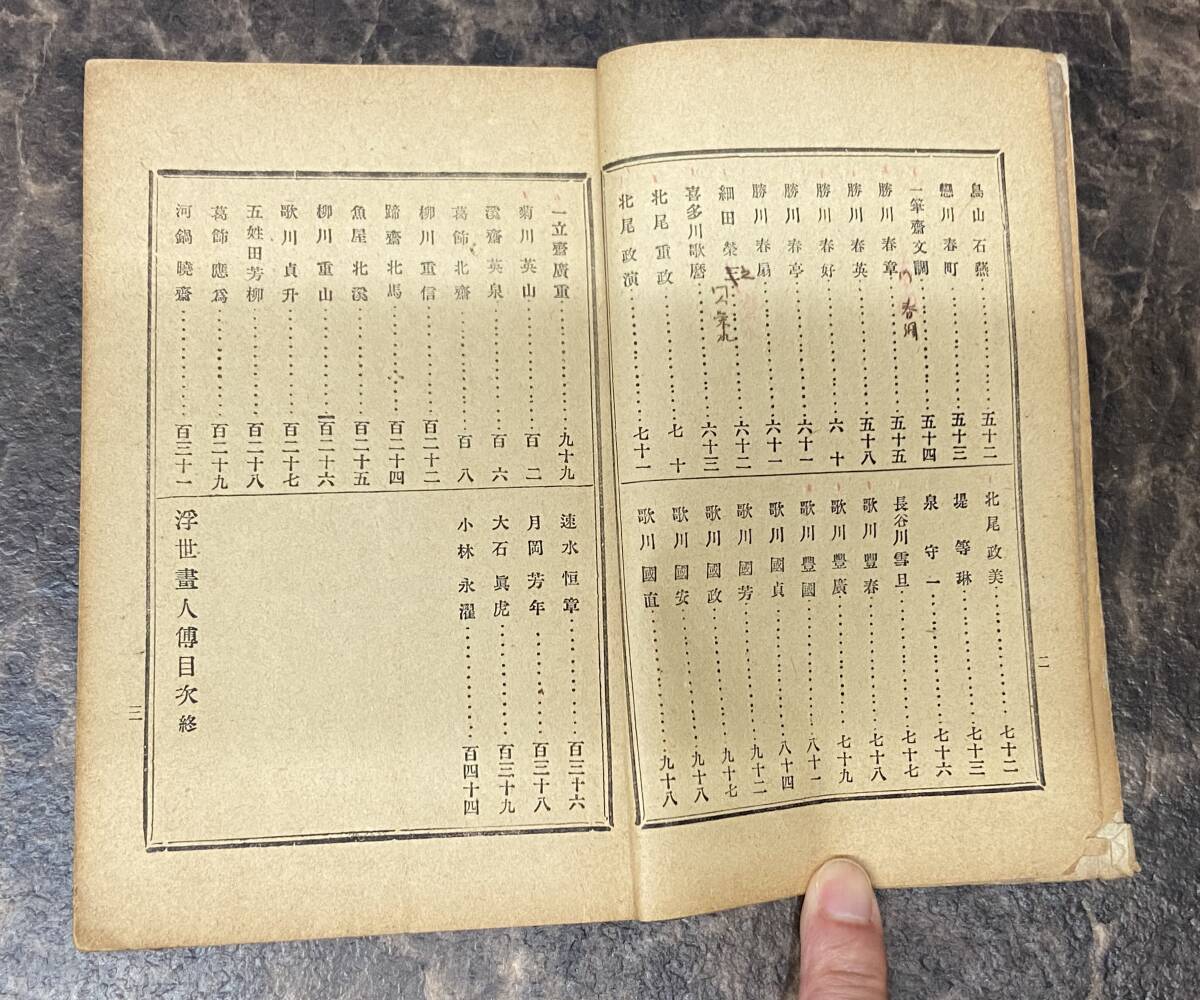 鳥山石燕…………五十二
戀川春町…………五十三
一筆齋文調…………五十四
勝川春章…………五十五
勝川春英…………五十八
勝川春好…………六十
勝川春亭…………六十一
勝川春扇…………六十一
細田榮之…………六十二
喜多川歌麿…………六十三
北尾重政…………七十
北尾政演…………七十一
北尾政美…………七十二
堤等琳…………七十三
泉守一…………七十六
長谷川雪旦…………七十七
歌川豐春…………七十八
歌川豐廣…………七十九
歌川豐國…………八十一
歌川國貞…………八十四
歌川國芳…………九十二
歌川國政…………九十七
歌川國安…………九十八
歌川國直…………九十八
二
一立齋廣重…………九十九
菊川英山…………百二
溪齋英泉…………百六
葛飾北齋…………百八
柳川重信…………百二十二
蹄齋北馬…………百二十四
魚屋北溪…………百二十五
柳川重山…………百二十六
歌川貞升…………百二十七
五姓田芳柳…………百二十八
葛飾應爲…………百二十九
河鍋曉齋…………百三十一
速水恒章…………百三十六
月岡芳年…………百三十八
大石眞虎…………百三十九
小林永濯…………百四十四
浮世畫人傳目次終
三